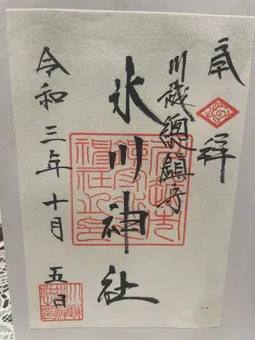 奉拝
川越總鎮守
氷川神社
令和三年十月五日